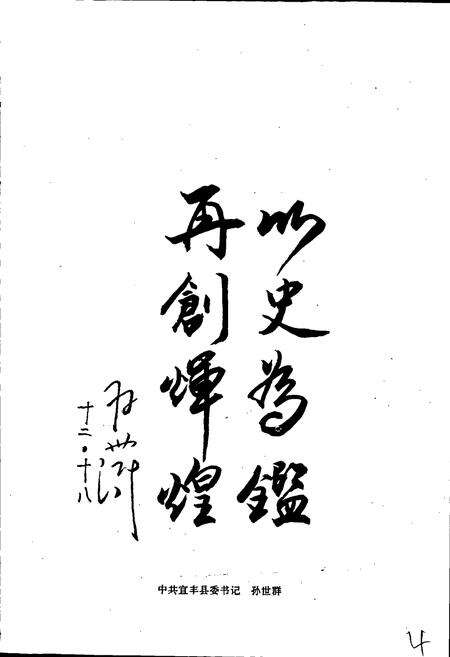 以史為鑑
再創輝煌
孙世群
十二·十八
中共宜丰县委书记　孙世群
4